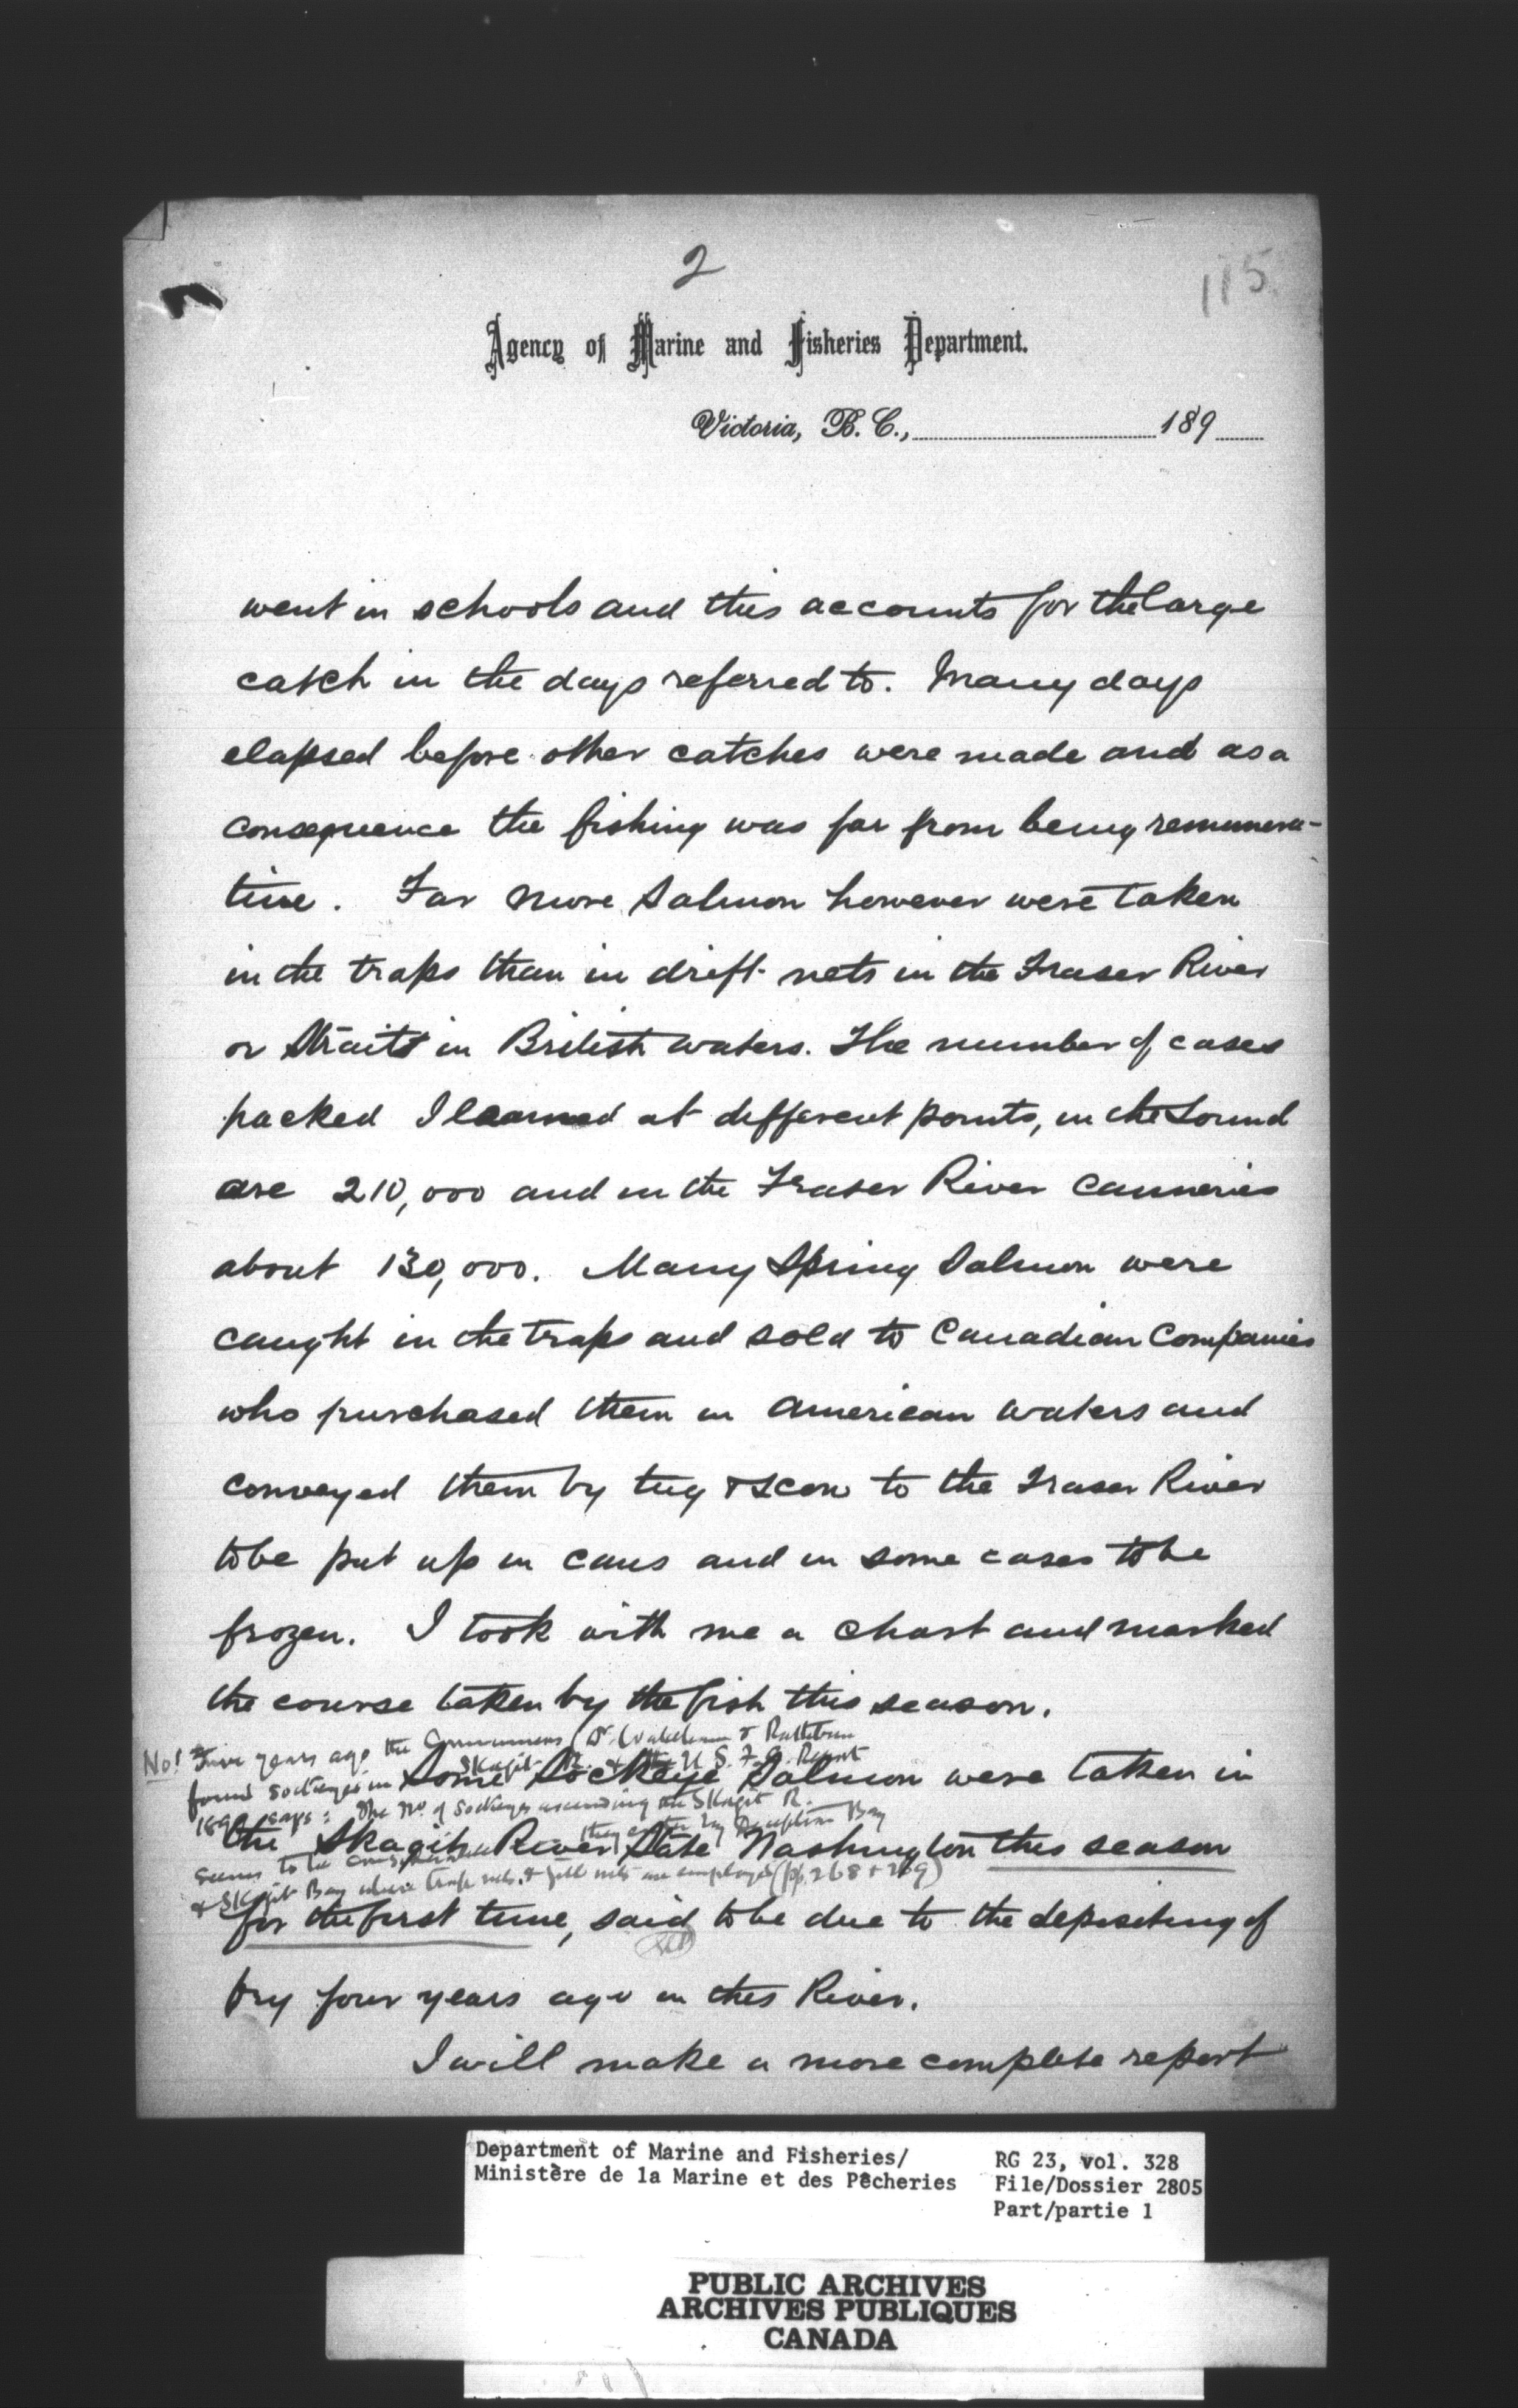 2
115
Agency of Marine and Fisheries Department.
Victoria, B. C., 189
went in schools and this accounts for the large
catch in the days referred to. Many days
elapsed before other catches were made and as a
consequence the fishing was far from being remunera-
tive. Far more Salmon however were taken
in the traps than in drift-nets in the Fraser River
or Straits in British waters. The number of cases
packed I learned at different points, in the Sound
are 210,000 and in the Fraser River Canneries
about 130,000. Many Spring Salmon were
caught in the traps and sold to Canadian Companies
who purchased them in American waters and
conveyed them by tug & scow to the Fraser River
to be put up in cans and in some cases to be
frozen. I took with me a chart and marked
the course taken by the fish this season.
No! Five years ago the (Dr. Wakeham & Rathbun
found sockeyes in Skagit R. & the U. S. F. C. Report
Some Sockeye Salmon were taken in
1899 says: The no. of Sockeyes ascending the Skagit R.
the Skagit River State Washington this season
seems to be they enter by Deception Bay
& Skagit Bay where trap nets & gill nets are employed (pp. 268 + 269)
for the first time, said to be due to the depositing of
fry four years ago in this River.
I will make a more complete report
Department of Marine and Fisheries/
Ministère de la Marine et des Pêcheries
RG 23, vol. 328
File/Dossier 2805
Part/partie 1
PUBLIC ARCHIVES
ARCHIVES PUBLIQUES
CANADA